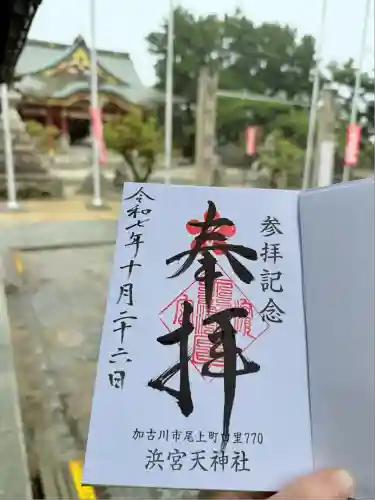 参拝記念
奉拝
令和七年十月二十二日
加古川市尾上町口里770
浜宮天神社